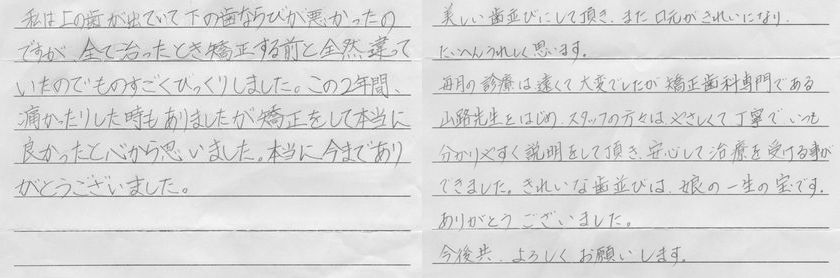 私は上の歯が出ていて下の歯ならびが悪かったの
ですが、全て治ったとき矯正する前と全然違って
いたのでものすごくびっくりしました。この2年間、
痛かったりした時もありましたが矯正をして本当に
良かったと心から思いました。本当に今まであり
がとうございました。
美しい歯並びにして頂き、また口元がきれいになり、
たいへんうれしく思います。
毎月の診療は遠くて大変でしたが矯正歯科専門である
山路先生をはじめ、スタッフの方々は、やさしくて丁寧で、いつも
分かりやすく説明をして頂き、安心して治療を受ける事が
できました。きれいな歯並びは、娘の一生の宝です。
ありがとうございました。
今後共、よろしくお願いします。